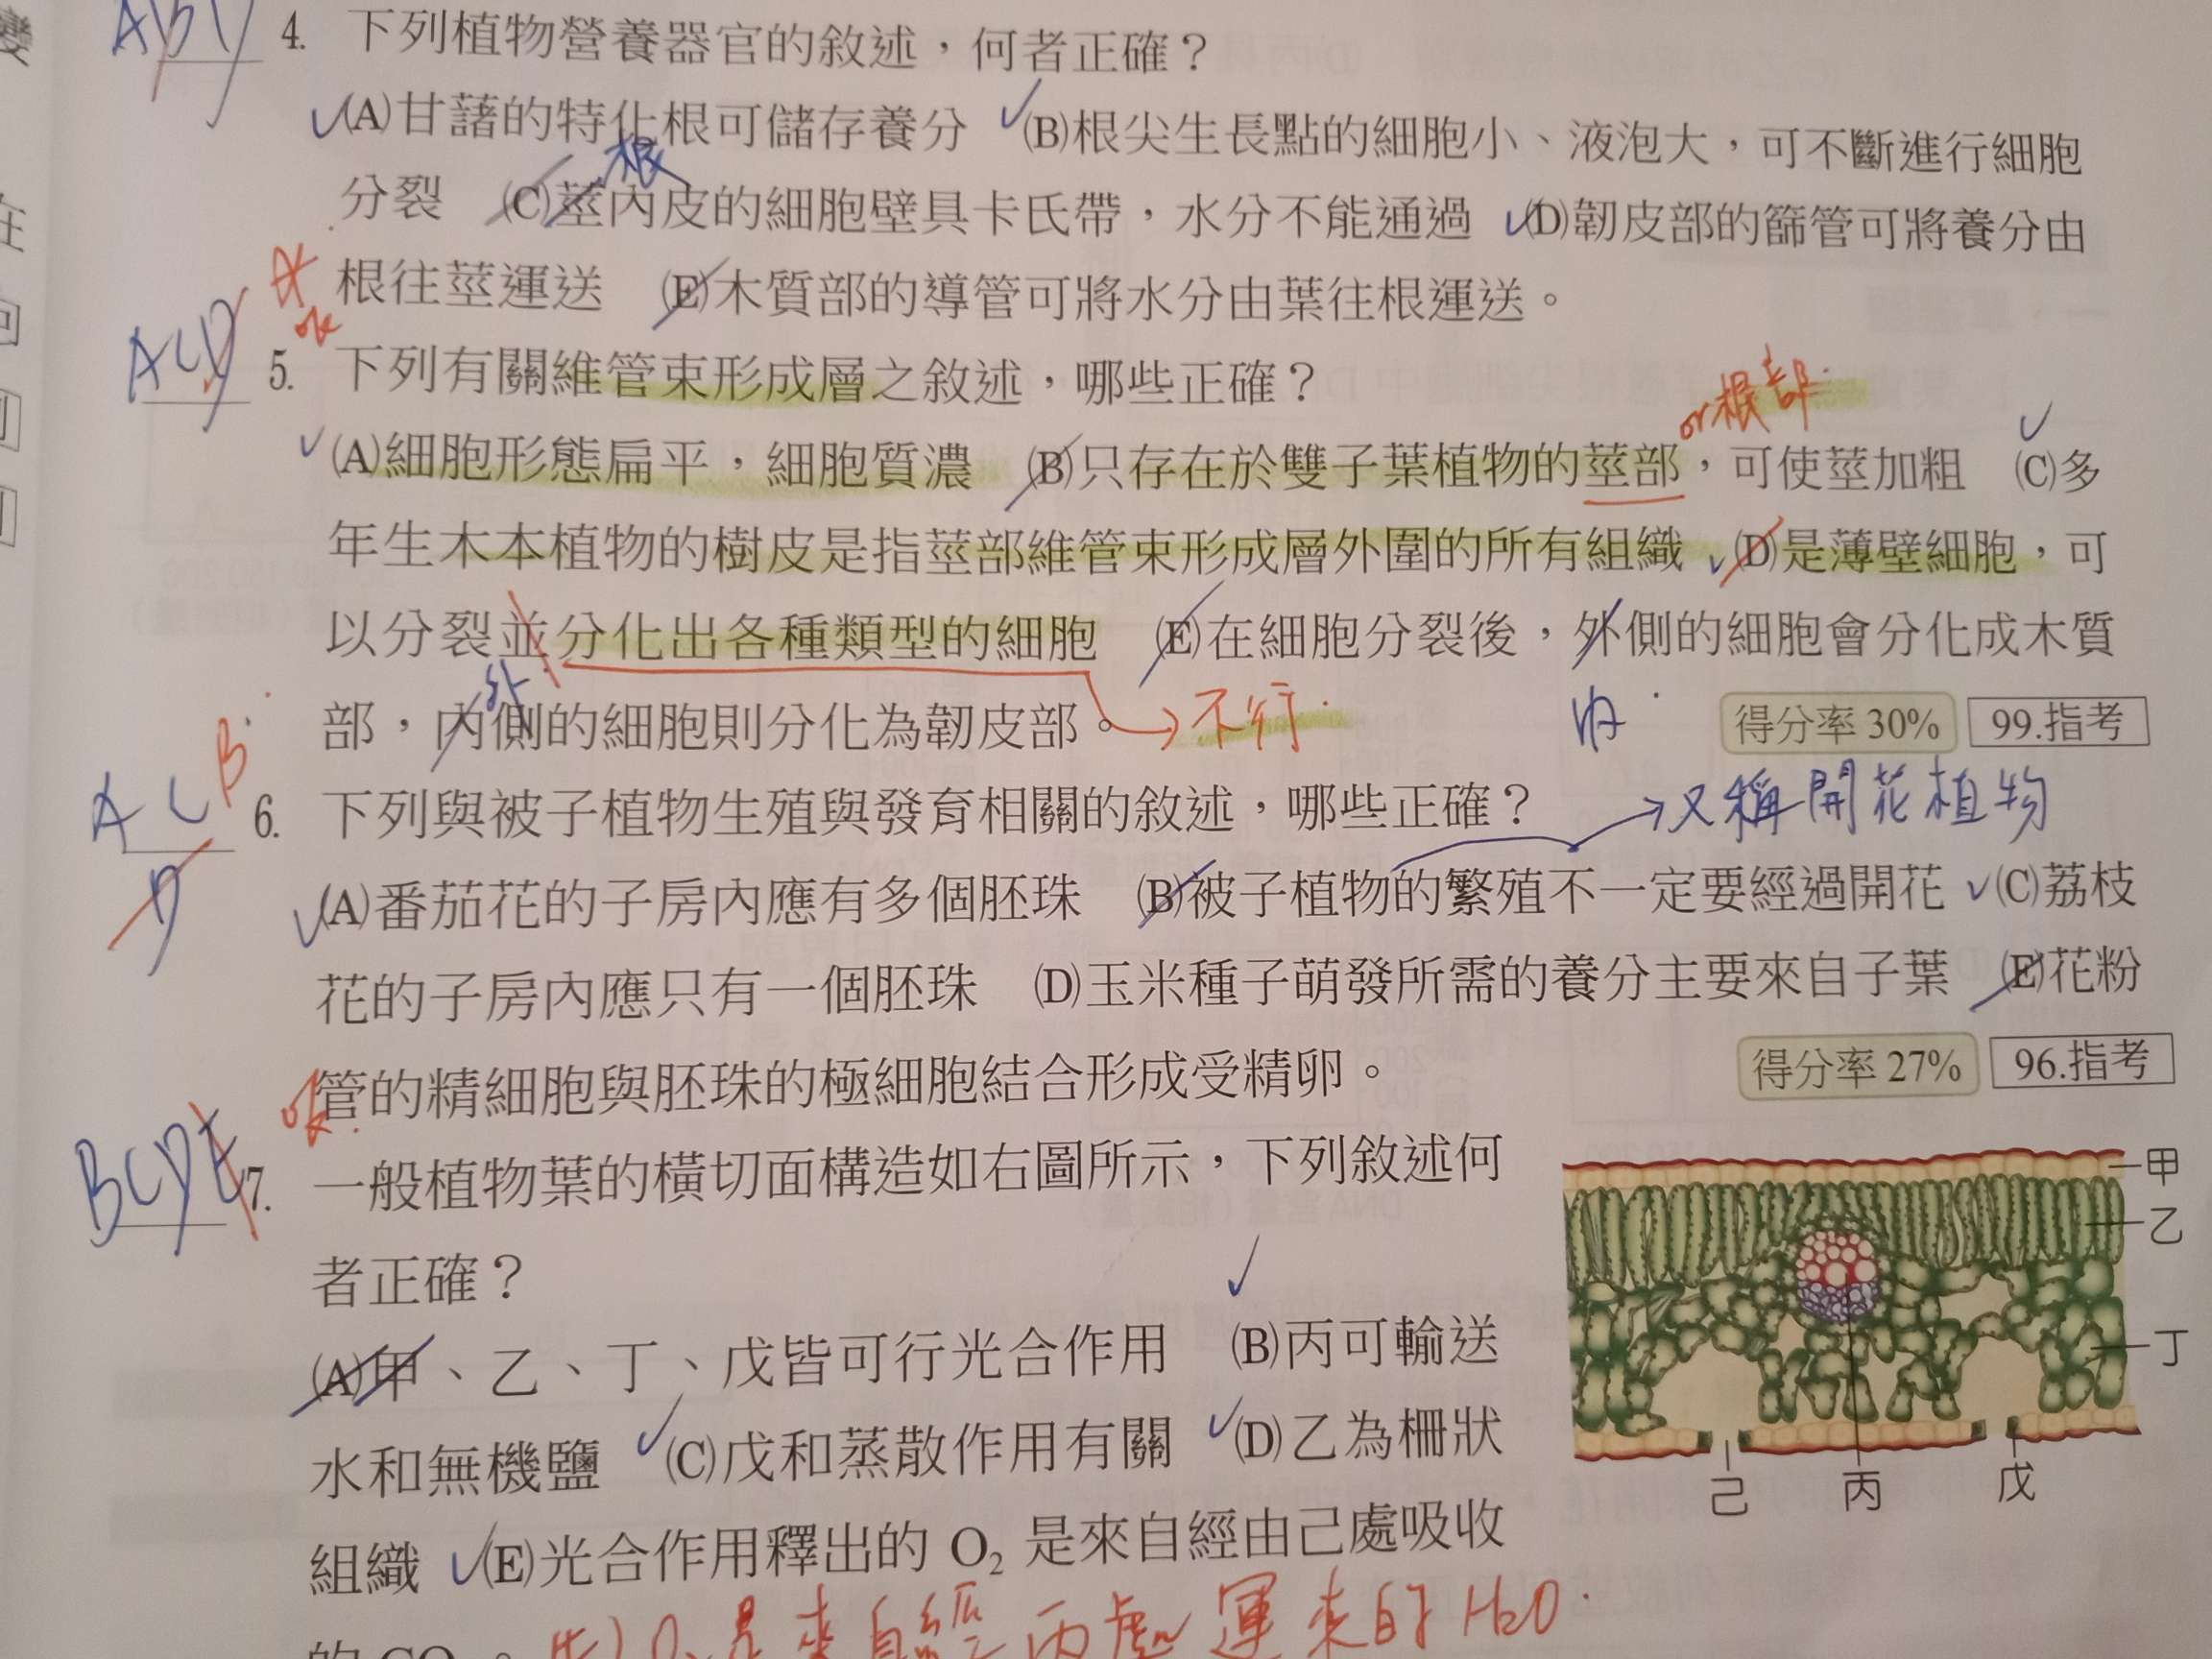 ABD 4. 下列植物營養器官的敘述，何者正確？
(A)甘藷的特化根可儲存養分 (B)根尖生長點的細胞小、液泡大，可不斷進行細胞
根
分裂 (C)莖內皮的細胞壁具卡氏帶，水分不能通過 (D)韌皮部的篩管可將養分由
根往莖運送 (E)木質部的導管可將水分由葉往根運送。
ACD ok 5. 下列有關維管束形成層之敘述，哪些正確？
or根部
(A)細胞形態扁平，細胞質濃 (B)只存在於雙子葉植物的莖部，可使莖加粗 (C)多
年生木本植物的樹皮是指莖部維管束形成層外圍的所有組織 (D)是薄壁細胞，可
以分裂並分化出各種類型的細胞 (E)在細胞分裂後，外側的細胞會分化成木質
外 內
部，內側的細胞則分化為韌皮部。 不行 得分率 30% 99.指考
ACB 6. 下列與被子植物生殖與發育相關的敘述，哪些正確？ 又稱開花植物
D
(A)番茄花的子房內應有多個胚珠 (B)被子植物的繁殖不一定要經過開花 (C)荔枝
花的子房內應只有一個胚珠 (D)玉米種子萌發所需的養分主要來自子葉 (E)花粉
管的精細胞與胚珠的極細胞結合形成受精卵。 得分率 27% 96.指考
ok
BCDE 7. 一般植物葉的橫切面構造如右圖所示，下列敘述何
者正確？
(A)甲、乙、丁、戊皆可行光合作用 (B)丙可輸送
水和無機鹽 (C)戊和蒸散作用有關 (D)乙為柵狀
組織 (E)光合作用釋出的 O₂ 是來自經由己處吸收
甲
乙
丁
己 丙 戊
是來自經丙處運來的H₂O.